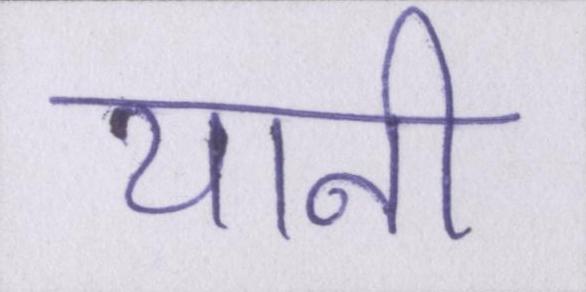 यानी